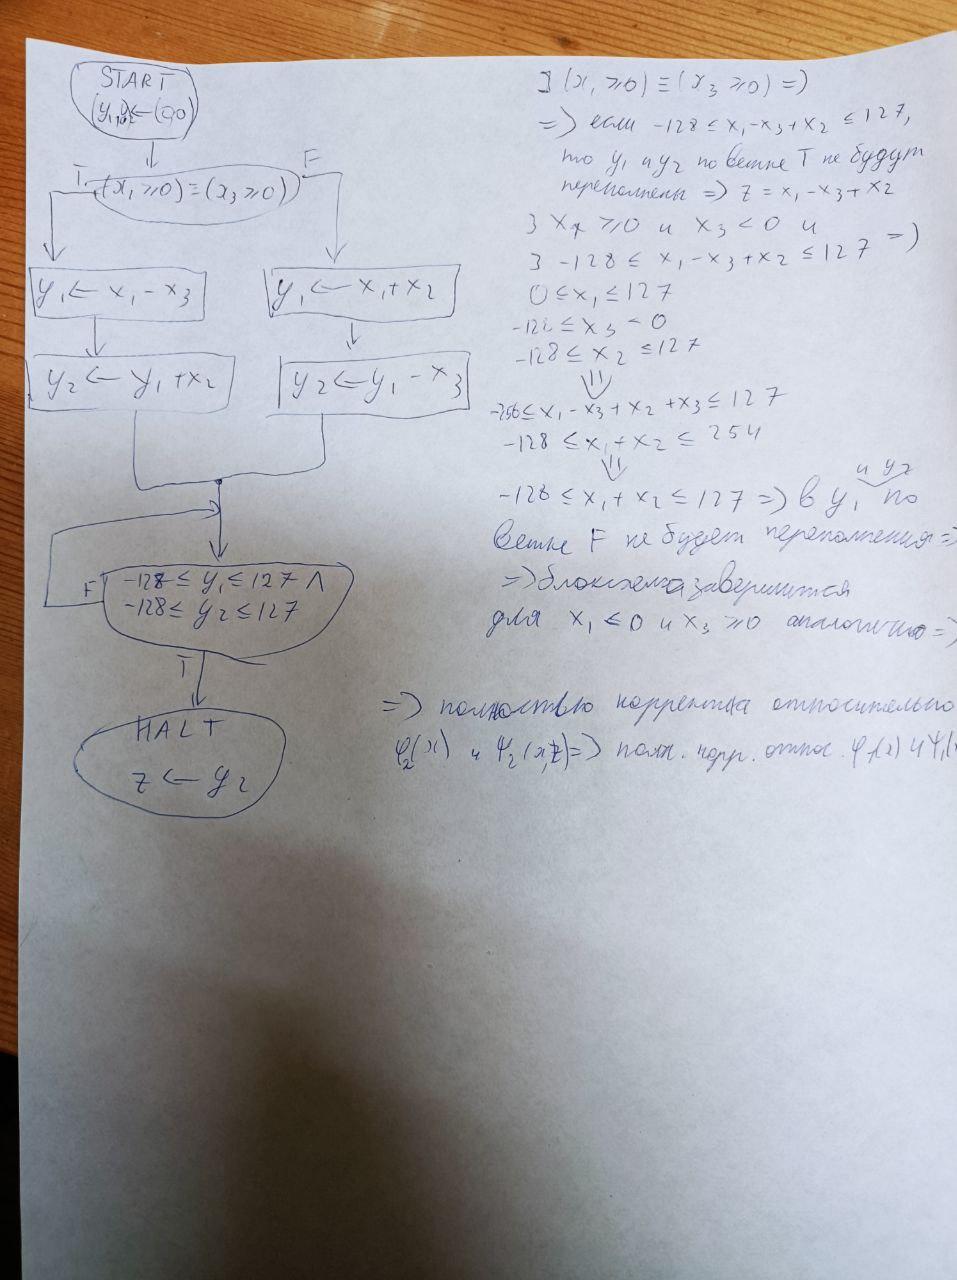 START
(y₁,y₂)←(0,0)
T
F
(x₁≥0)≡(x₃≥0)
y₁ ← x₁ - x₃
y₁ ← x₁ + x₂
y₂ ← y₁ + x₂
y₂ ← y₁ - x₃
F
-128 ≤ y₁ ≤ 127 ∧
-128 ≤ y₂ ≤ 127
T
HALT
z ← y₂
∃ (x₁ ≥0) ≡ (x₃ ≥0) =>
=> если -128 ≤ x₁-x₃+x₂ ≤ 127,
то y₁ и y₂ по ветке T не будут
переполнены => z = x₁-x₃+x₂
∃ x₁ ≥0 и x₃ < 0 и
∃ -128 ≤ x₁-x₃+x₂ ≤ 127 =>
0 ≤ x₁ ≤ 127
-128 ≤ x₃ < 0
-128 ≤ x₂ ≤ 127
⇓
-256 ≤ x₁ - x₃ + x₂ + x₃ ≤ 127
-128 ≤ x₁ + x₂ ≤ 254
⇓
-128 ≤ x₁ + x₂ ≤ 127 => в y₁ и y₂ по
ветке F не будет переполнения =>
=> блоксхема завершится
для x₁ ≤ 0 и x₃ ≥ 0 аналогично =>
=> полностью корректна относительно
φ₂(x) и ψ₂(x,z) => полн. корр. относ. φ₁(x) и ψ₁(x